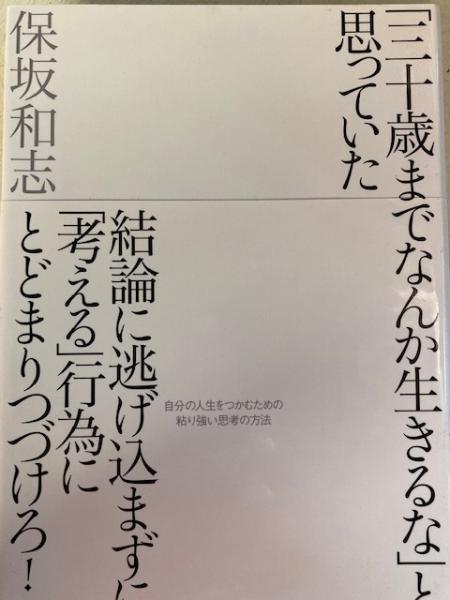 「三十歳までなんか生きるな」と
思っていた
保坂和志
結論に逃げ込まずに
「考える」行為に
とどまりつづけろ!
自分の人生をつかむための
粘り強い思考の方法